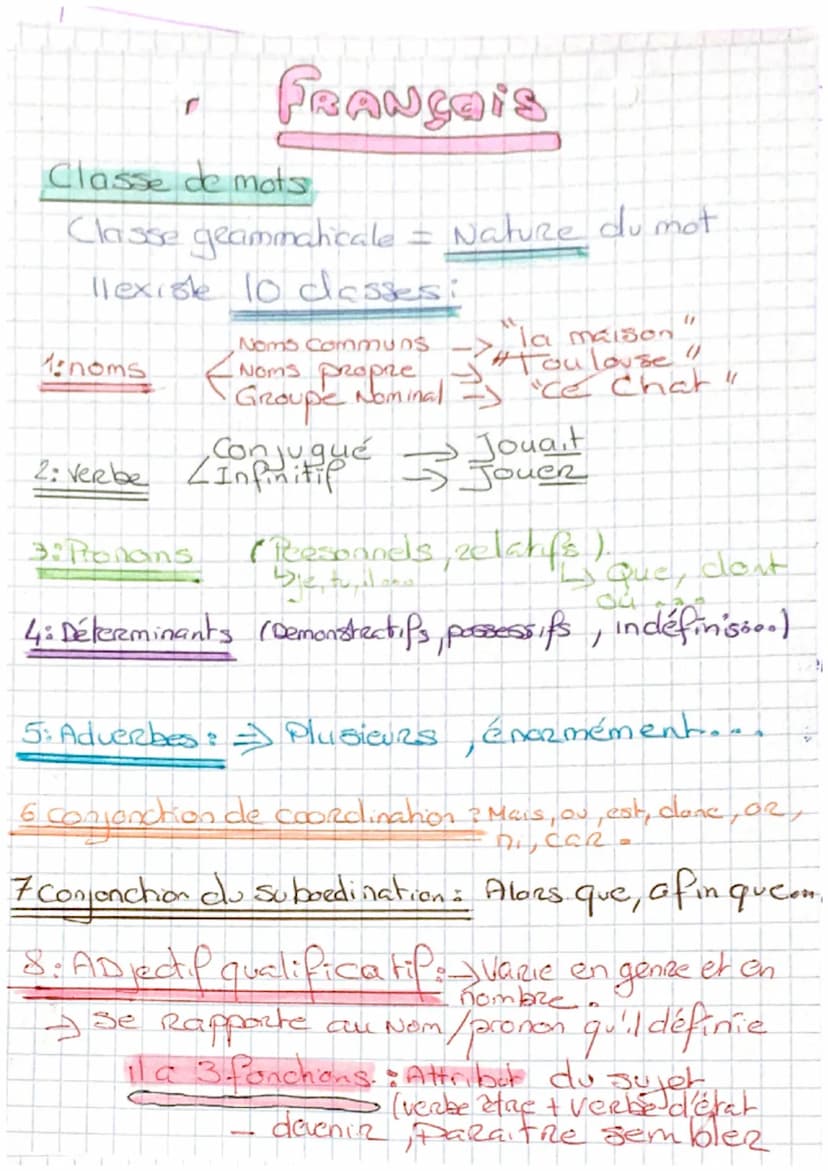 FRANÇAIS
Classe de mots
Classe grammaticale = Nature du mot
Il existe 10 classes :
1: noms
Noms communs -> "la maison"
Noms propre -> "Toulouse"
Groupe Nominal -> "Ce Chat"
2: verbe
Conjugué -> Jouait
Infinitif -> Jouer
3: Pronoms (Personnels, relatifs).
↳ je, tu, il... ↳ Que, dont
où ...
4: Déterminants (Demonstratifs, possessifs, indéfinis...)
5: Adverbes : => Plusieurs, énormément....
6 Conjonction de coordination : Mais, ou, est, donc, or,
ni, car.
7 Conjonction du subordination : Alors que, afin que...
8: ADjectif qualificatif : -> Varie en genre et en
nombre.
-> Se Rapporte au Nom/pronon qu'il définie
il a 3 fonctions. : Attribut du sujet
(verbe être + verbe d'état
- devenir, paraitre sembler